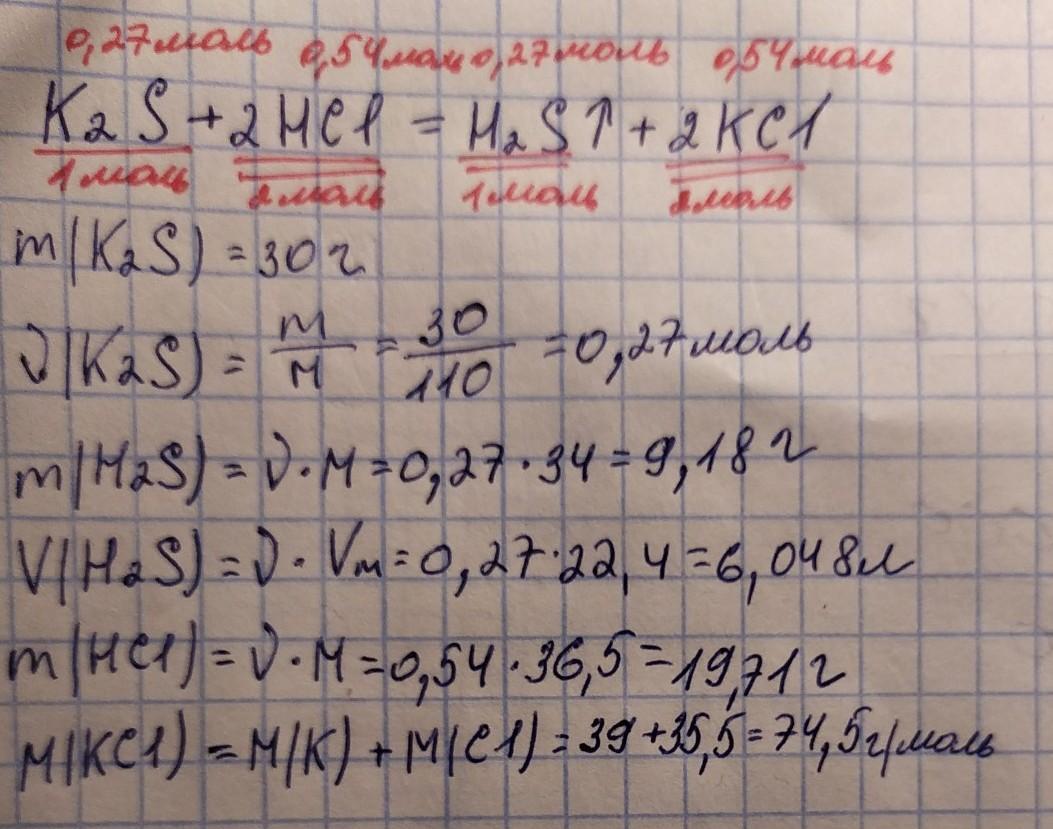 0,27моль 0,54моль 0,27моль 0,54моль
K₂S + 2HCl = H₂S↑ + 2KCl
1моль 2моль 1моль 2моль
m(K₂S) = 30г
ν(K₂S) = m/M = 30/110 = 0,27моль
m(H₂S) = ν·M = 0,27·34 = 9,18г
V(H₂S) = ν·Vm = 0,27·22,4 = 6,048л
m(HCl) = ν·M = 0,54·36,5 = 19,71г
M(KCl) = M(K) + M(Cl) = 39+35,5 = 74,5г/моль